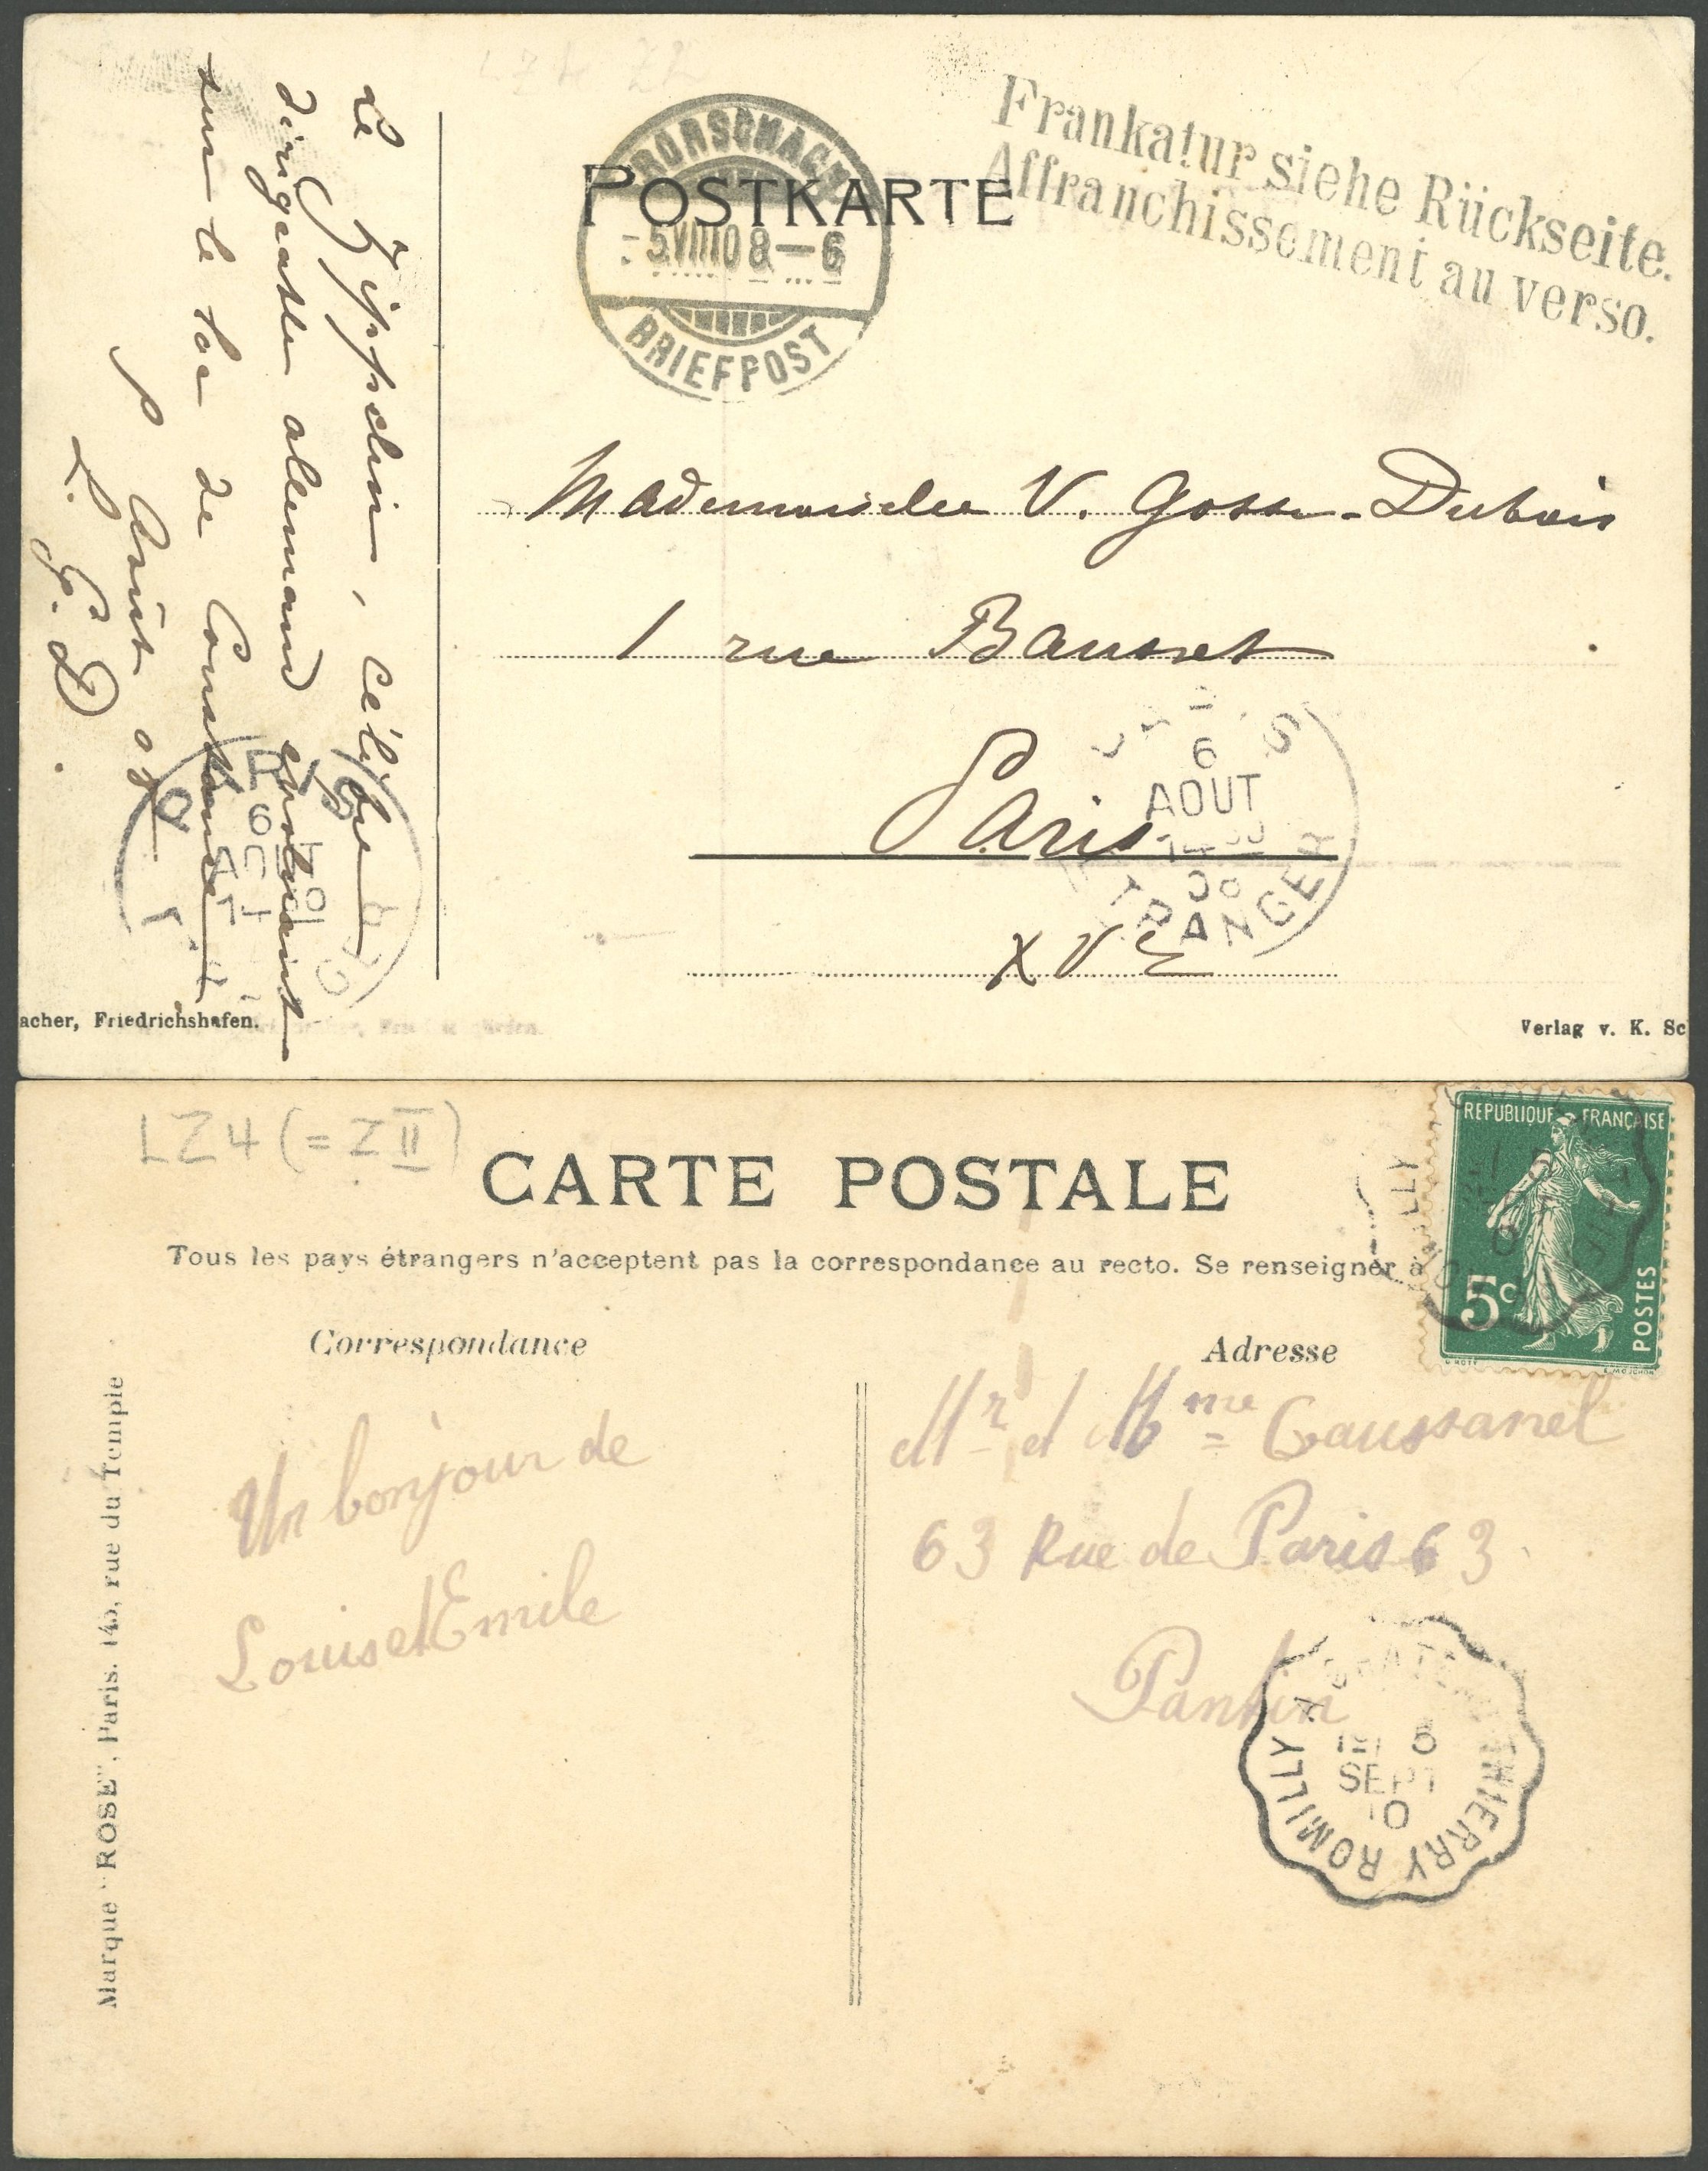 LZ4 ZII
POSTKARTE
RORSCHACH
-5.VIII.08—6
BRIEFPOST
Frankatur siehe Rückseite.
Affranchissement au verso.
Le Zeppelin, célèbre
dirigeable allemand évoluant
sur le lac de Constance
5 Août 08
L. G. D.
Mademoiselle V. Gosse-Dubois
1 rue Bausset
Paris
XVE
6
AOUT
08
ETRANGER
acher, Friedrichshafen.
Verlag v. K. Sc
LZ4 (= ZII)
CARTE POSTALE
Tous les pays étrangers n'acceptent pas la correspondance au recto. Se renseigner à
REPUBLIQUE FRANÇAISE
5c
POSTES
Correspondance
Adresse
Marque "ROSE", Paris. 145, rue du Temple
Un bonjour de
Louis et Emile
Mr et Mme Gaussanel
63 Rue de Paris 63
Pantin
ROMILLY A CHATEAU THIERRY
SEPT
10